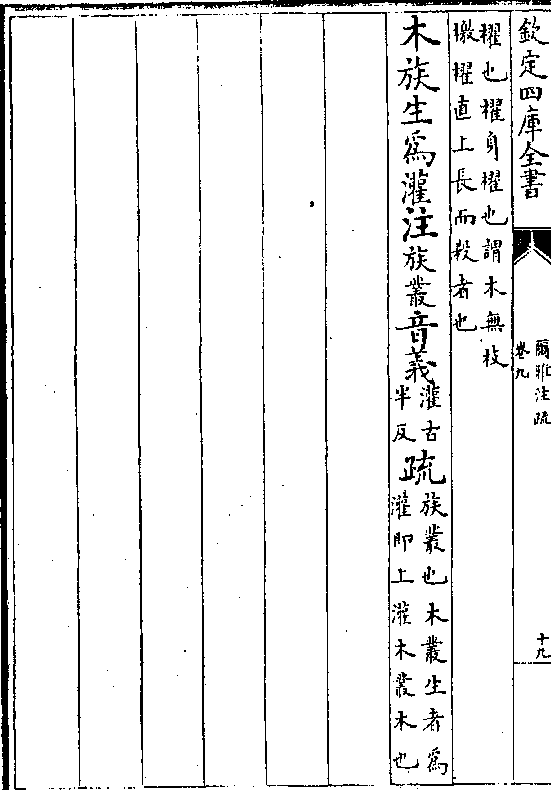 欽定四庫全書
爾雅注疏
卷九
十九
櫂也櫂身櫂也謂木無枝
橄櫂直上長而殺者也
木族生爲灌注族叢音義灌古
半反疏族叢也木叢生者爲
灌即上灌木叢木也